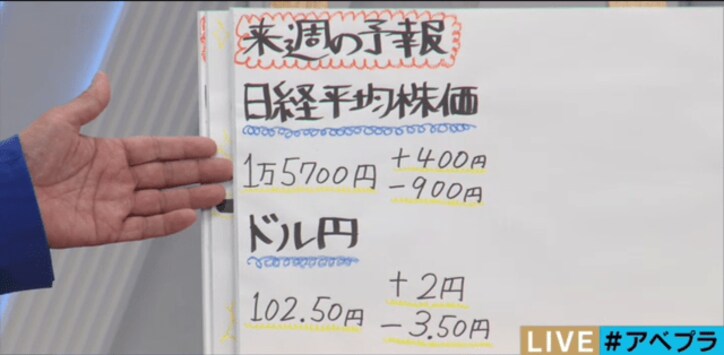 来週の予報
日経平均株価
1万5700円
+400円
-900円
ドル円
102.50円
+2円
-3.50円
LIVE #アベプラ